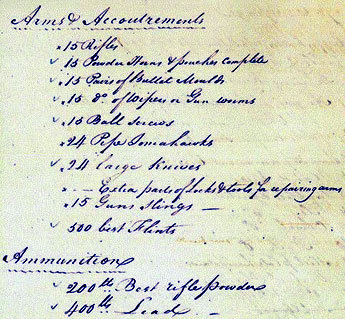 Arms & Accoutrements
15 Rifles
15 Powder Horns & pouches complete
15 Pairs of Bullet Moulds
15 do. of Wipers or Gun worms
15 Ball Screws
24 Pipe Tomahawks
24 large Knives
Extra parts of Locks & tools for repairing arms
15 Guns Slings —
500 best Flints
Ammunition
200 lb. Best rifle powder
400 lb. Lead —